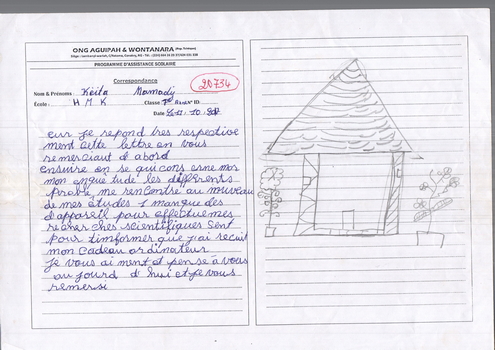 ONG AGUIPAH & WONTANARA
PROGRAMME D'ASSISTANCE SCOLAIRE
Correspondance
20734
Nom & Prénoms : Keita Mamady
École : H M K Classe 7e ID
Date
je repond tres respective
ment cette lettre en vous
remerciant d'abord
ensuire en se qui cons erne moi
mon enque tude les differents
probe me rencontre au niveau
de mes études 1 manque des
d'appareil pour effectue mes
recher cher scientifiques sent
pour t'imformer que j'ai recuit
mon cadeau ordinateur
Je vous ai ment et pen se à vous
au jourd d'hui et je vous
remersi